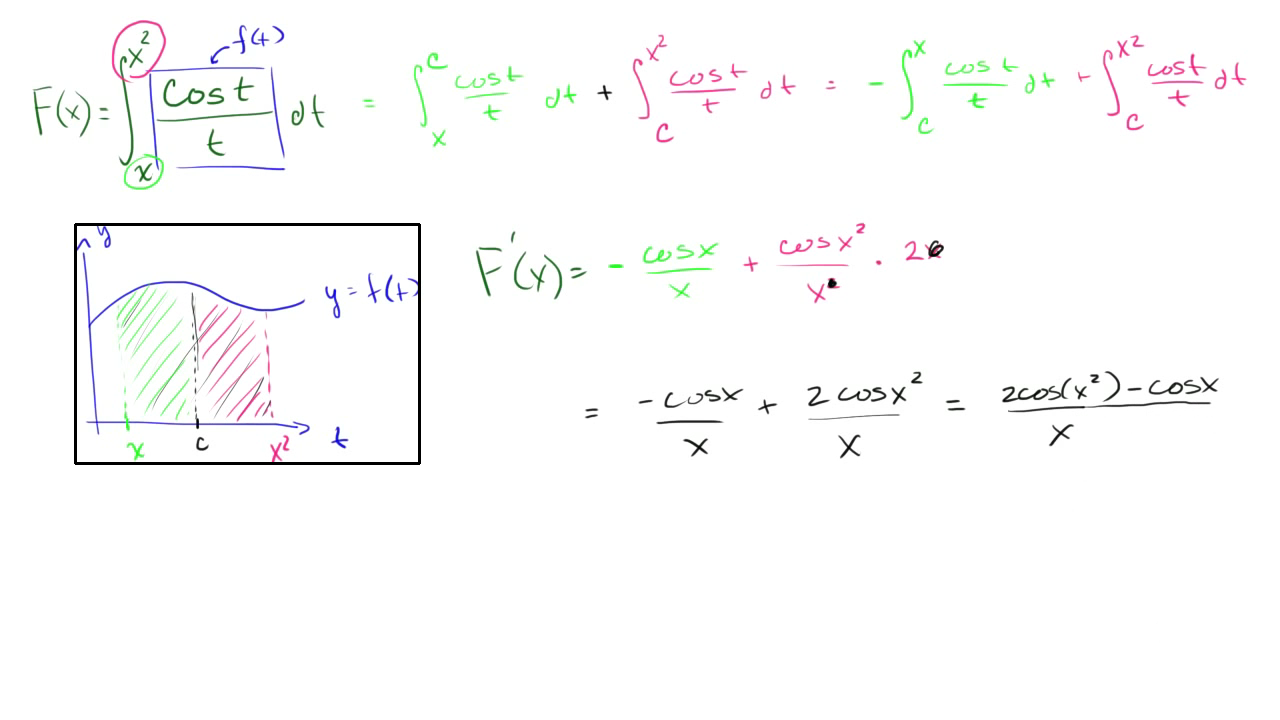 f(t)
F(x) = ∫_x^{x²} cos t / t dt = ∫_x^c cos t / t dt + ∫_c^{x²} cos t / t dt = - ∫_c^x cos t / t dt + ∫_c^{x²} cos t / t dt
y
y = f(t)
x c x² t
F'(x) = - cos x / x + cos x² / x · 2
= - cos x / x + 2 cos x² / x = 2cos(x²) - cos x / x